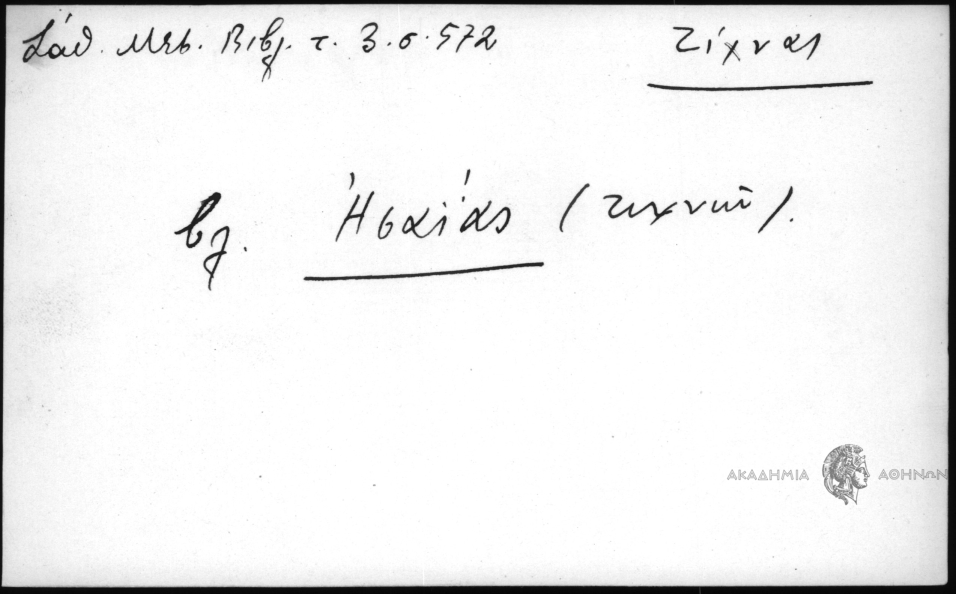 Σάθ. Μεσ. Βιβλ. τ. 3. σ. 572
Ζίχνας
βλ. Ἠσαΐας (Ζιχνῶν).
ΑΚΑΔΗΜΙΑ ΑΘΗΝΩΝ